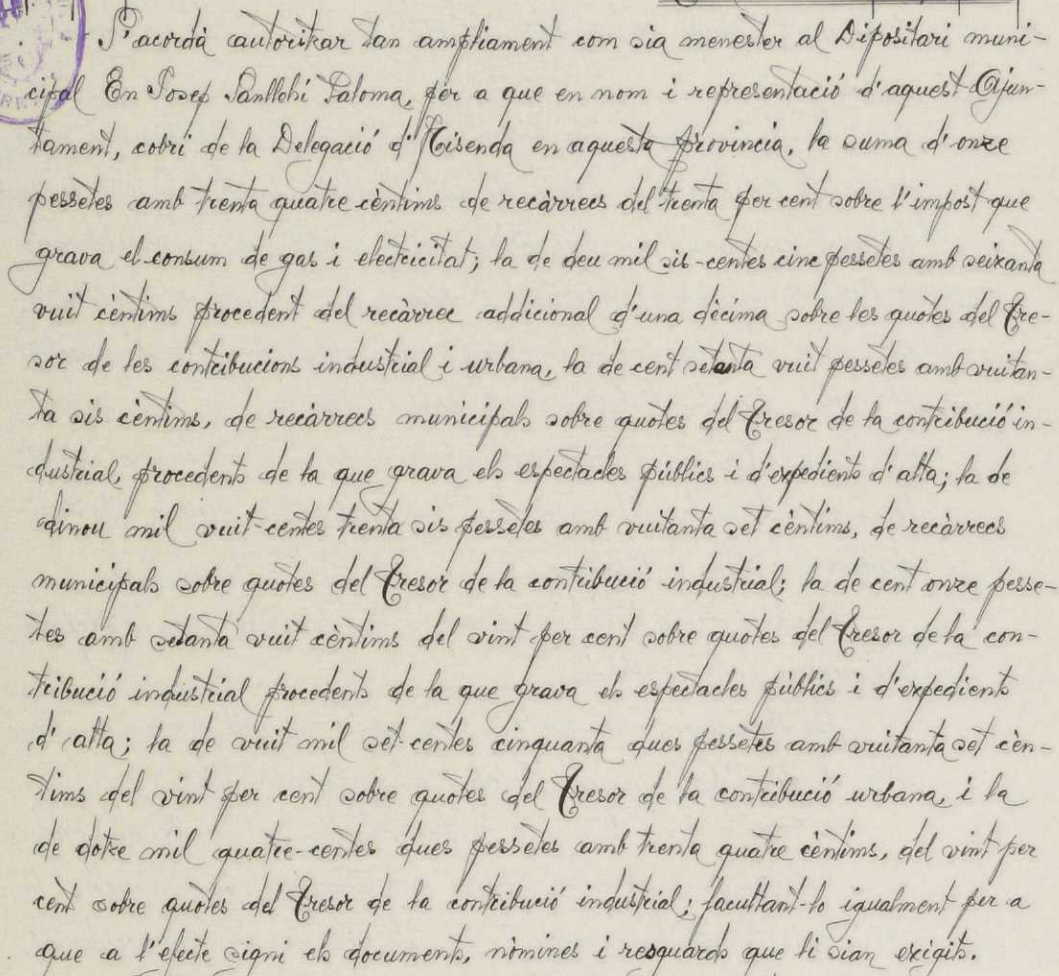 S'acordà autoritzar tan ampliament com sia menester al Dipositari muni-
cipal En Josep Sanllehi Paloma, per a que en nom i representació d'aquest Ajun-
tament, cobri de la Delegació d'Hisenda en aquesta provincia, la suma d'onze
pessetes amb trenta quatre cèntims de recàrrecs del trenta per cent sobre l'impost que
grava el consum de gas i electricitat; la de deu mil sis-centes cinc pessetes amb seixanta
vuit cèntims procedent del recàrrec addicional d'una dècima sobre les quotes del Tre-
sor de les contribucions industrial i urbana, la de cent setanta vuit pessetes amb vuitan-
ta sis cèntims, de recàrrecs municipals sobre quotes del Tresor de la contribució in-
dustrial, procedents de la que grava els espectacles públics i d'expedients d'alta; la de
dinou mil vuit-centes trenta sis pessetes amb vuitanta set cèntims, de recàrrecs
municipals sobre quotes del Tresor de la contribució industrial; la de cent onze pesse-
tes amb setanta vuit cèntims del vint per cent sobre quotes del Tresor de la con-
tribució industrial procedents de la que grava els espectacles públics i d'expedients
d'alta; la de vuit mil set-centes cinquanta dues pessetes amb vuitanta set cèn-
tims del vint per cent sobre quotes del Tresor de la contribució urbana, i la
de dotze mil quatre-centes dues pessetes amb trenta quatre cèntims, del vint per
cent sobre quotes del Tresor de la contribució industrial; facultant-lo igualment per a
que a l'efecte signi els documents, nòmines i resguards que li sian exigits.